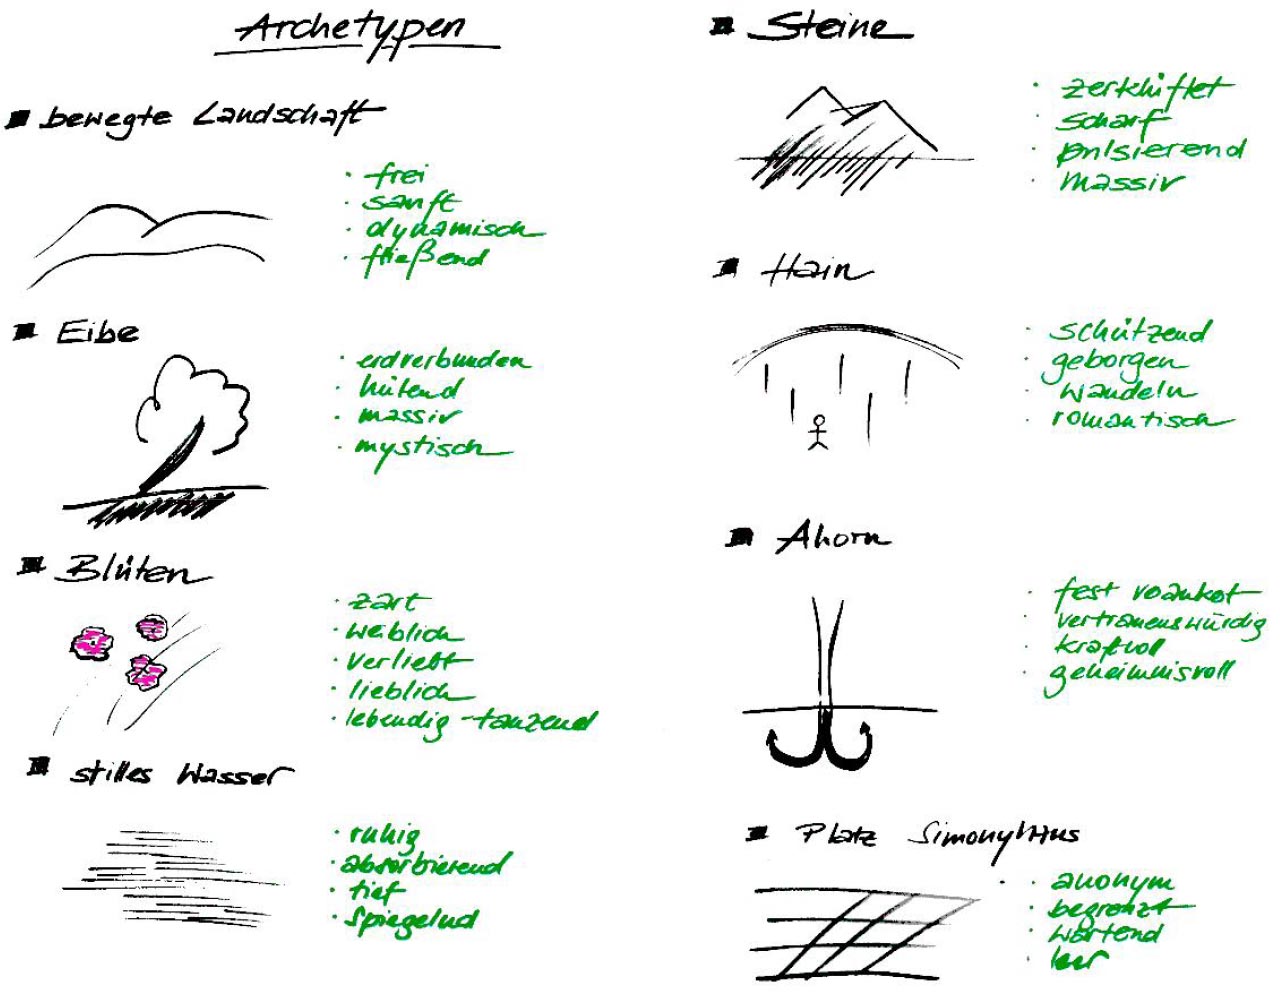 Archetypen
bewegte Landschaft
· frei
· sanft
· dynamisch
· fließend
Eibe
· erdverbunden
· hütend
· massiv
· mystisch
Blüten
· zart
· weiblich
· verliebt
· lieblich
· lebendig-tanzend
stilles Wasser
· ruhig
· absorbierend
· tief
· spiegelnd
Steine
· zerklüftet
· scharf
· pulsierend
· massiv
Hain
· schützend
· geborgen
· wandeln
· romantisch
Ahorn
· fest verankert
· vertrauenswürdig
· kraftvoll
· geheimnisvoll
Platz Simonyhaus
· anonym
· begrenzt
· wartend
· leer